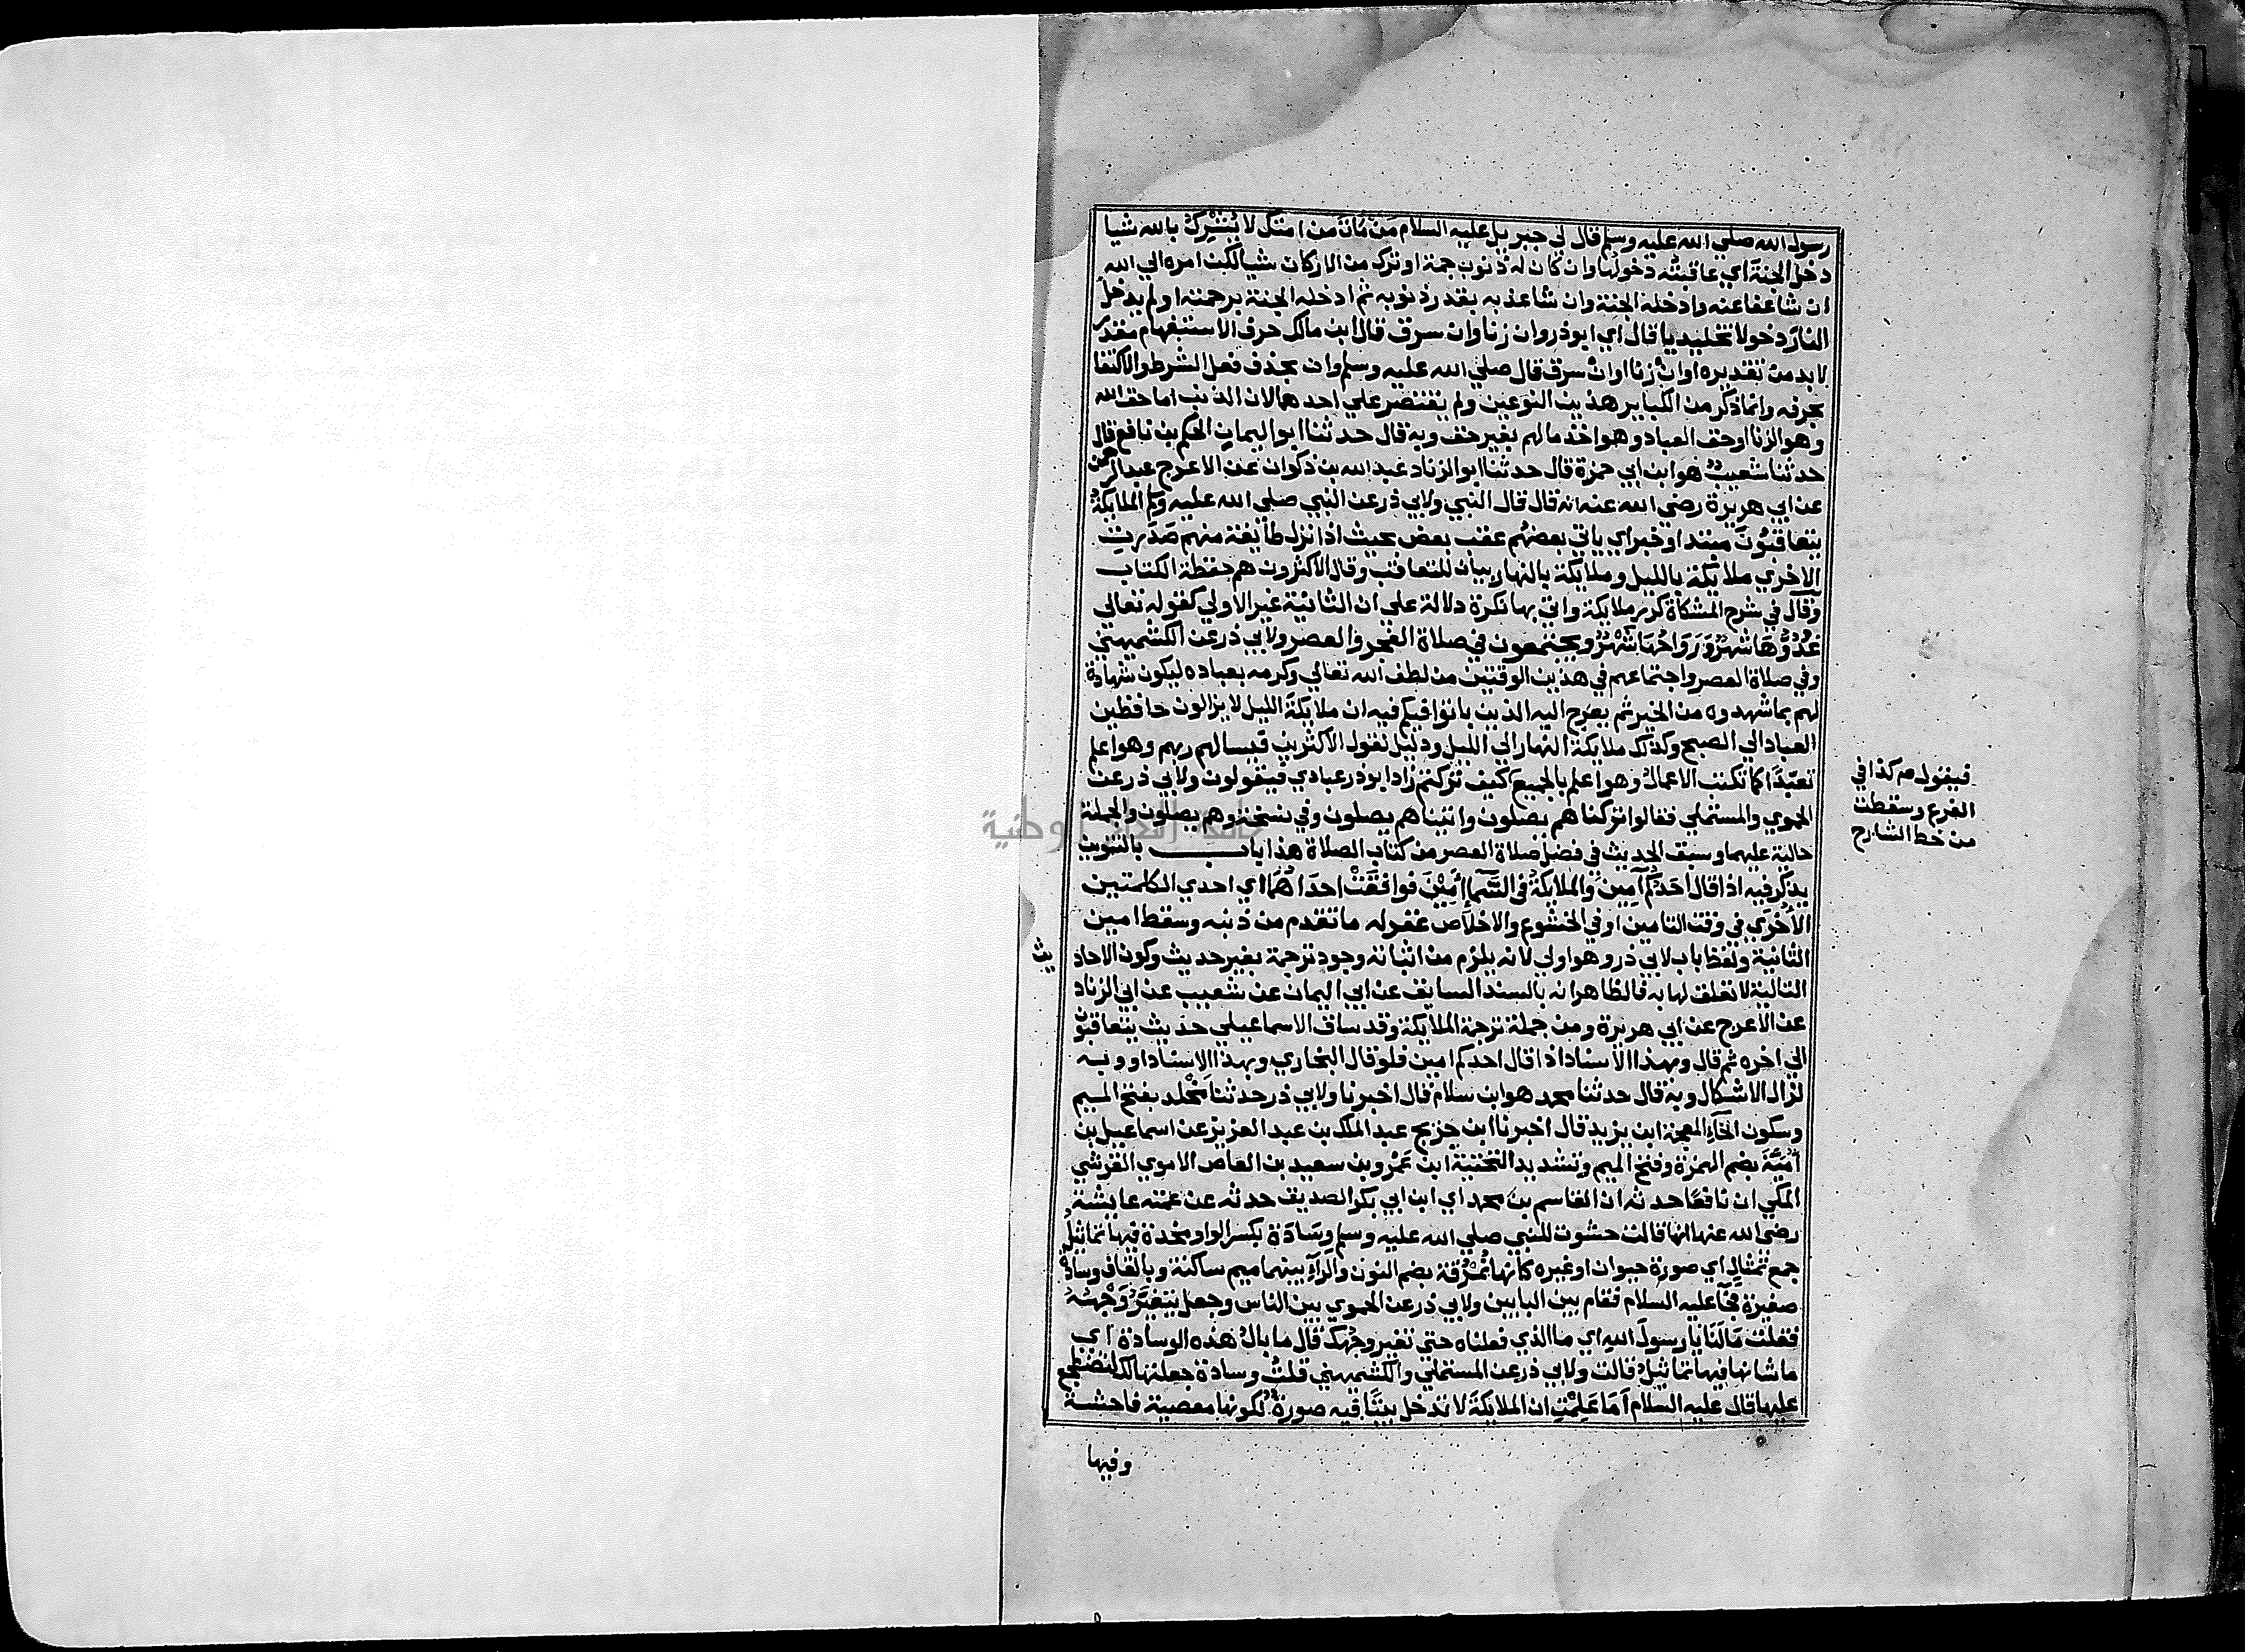 رسول الله صلي الله عليه وسلم قال لي جبريل عليه السلام مَن مَاتَ من امتك لا يُشْرِكُ بالله شيا
دخل الجنة اي عاقبته دخولها وان كان له ذنوب جمة او ترك من الاركان شيا لكن امره الي الله
ان شا عفا عنه وادخله الجنة وان شا عذبه بقدر ذنوبه ثم ادخله الجنة برحمته او لم يدخل
النار دخولا تخليديا قال اي ابو ذر وان زنا وان سرق قال ابن مالك حرف الاستفهام مقدر
لا بد من تقديره او ان زنا او ان سرق قال صلي الله عليه وسلم وان بحذف فعل الشرط والاكتفا
بحرفه وانما ذكر من الكباير هذين النوعين ولم يقتصر علي احدهما لان الذنب اما حق الله
وهو الزنا او حق العباد وهو اخذ مالهم بغير حق وبه قال حدثنا ابو اليمان الحكم بن نافع قال
حدثنا شعيب هو ابن ابي حمزة قال حدثنا ابو الزناد عبد الله بن ذكوان عن الاعرج عبد الرحمن
عن ابي هريرة رضي الله عنه انه قال قال النبي ولابي ذر عن النبي صلي الله عليه وسلم الملايكة
يتعاقبُونَ مبتدا وخبر اي ياتي بعضهم عقب بعض بحيث اذا نزل طايفة منهم صَدَرتِ
الاخري ملايكة بالليل وملايكة بالنهار بيان للتعاقب وقال الاكثرون هم حفظة الكتاب
وقال في شرح المشكاة كرر ملايكة واتي بها نكرة دلالة علي ان الثانية غير الاولي كقوله تعالي
غُدُوُّهَا شَهْرٌ وَرَوَاحُهَا شَهْرٌ ويجتمعون في صلاة الفجر والعصر ولابي ذر عن الكشميهني
وفي صلاة العصر واجتماعهم في هذين الوقتين من لطف الله تعالي وكرمه بعباده ليكون شهادة
لهم بما شهدوه من الخير ثم يعرج اليه الذين باتوا فيكم فيه ان ملايكة الليل لا يزالون حافظين
العباد الي الصبح وكذلك ملايكة النهار الي الليل ودليل لقول الاكثرين فيسالهم ربهم وهو اعلم
تعبدًا كما تكتب الاعمال وهو اعلم بالجميع كيف تركتم زاد ابو ذر عبادي فيقولون ولابي ذر عن
الحموي والمستملي فقالوا تركناهم يصلون واتيناهم يصلون وفي نسخة وهم يصلون والجملة
حالية عليهما وسبق الحديث في فضل صلاة العصر من كتاب الصلاة هذا باب بالتنوين
يذكر فيه اذا قال احدكم آمين والملايكة في السَّمَا آمِيْنَ فوافقَتْ احدَاهُمَا اي احدي الكلمتين
الأخرَي في وقت التامين او في الخشوع والاخلاص غفر له ما تقدم من ذنبه وسقط امين
الثانية ولفظ باب لابي ذر وهو اولي لانه يلزم من اثباته وجود ترجمة بغير حديث وكون الاحاديث
التالية لا تعلق لها به فالظاهر انه بالسند السابق عن ابي اليمان عن شعيب عن ابي الزناد
عن الاعرج عن ابي هريرة ومن جملة ترجمة الملايكة وقد ساق الاسماعيلي حديث يتعاقبون
الي اخره ثم قال وبهذا الاسناد اذا قال احدكم امين فلو قال البخاري وبهذا الاسناد او وبه
لزال الاشكال وبه قال حدثنا محمد هو ابن سلام قال اخبرنا ولابي ذر حدثنا مَخْلد بفتح الميم
وسكون الخاء المعجمة ابن يزيد قال اخبرنا ابن جريج عبد الملك بن عبد العزيز عن اسماعيل بن
أُمَيَّة بضم الهمزة وفتح الميم وتشديد التحتية ابن عَمْرو بن سعيد بن العاص الاموي القرشي
المكي ان نافعًا حدثه ان القاسم بن محمد اي ابن ابي بكر الصديق حدثه عن عمته عايشة
رضي الله عنها انها قالت حشوت للنبي صلي الله عليه وسلم وِسَادَة بكسر الواو مخدة فيها تماثيل
جمع تمثال اي صورة حيوان او غيره كانها نُمْرُقة بضم النون والراء بينهما ميم ساكنة وبالقاف وسادة
صغيرة فجا عليه السلام فقام بين البابين ولابي ذر عن الحموي بين الناس وجعل يتغيَّرُ وَجْهُهُ
فقلت مَا لَنَا يا رسول الله اي ما الذي فعلناه حتي تغير وجهك قال ما بال هذه الوسادة اي
ما شانها فيها تماثيل قالت ولابي ذر عن المستملي والكشميهني قلت وسادة جعلتها لك لتضطجع
عليها قال عليه السلام أمَا عَلِمْتِ ان الملايكة لا تدخل بيتًا فيه صورة لكونها معصية فاحشة
وفيها
فيقول صم كذا في
الفرع وسقطت
من خط الشارح
جامعة النجاح الوطنية